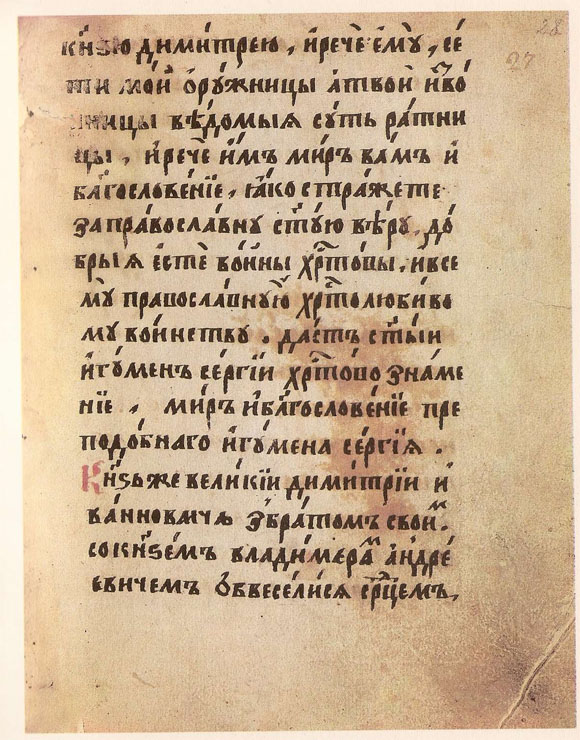 28
27
кн҃зю димитрею, и҆рече є҆му̀, се́
ти мои҆ ѻ҆ру́жницы а҆твои҆ и҆зво́
нницы вѣ́домыѧ су́ть ра́тни
цы, и҆рече и҆̀мъ ми́ръ ва́мъ и҆
бл҃гослове́нїе, ꙗ҆́ко стра́жете
за правосла́вну ст҃ую вѣ́ру, до́
брыѧ є҆стѐ во́ины хр҃то́вы. и҆все
мꙋ̀ правосла́вную хр҃толюби́во
мꙋ во́инству. да́стъ ст҃ы́и
и҆гꙋ́менъ се́ргїи хр҃то́во зна́ме
нїе, ми́ръ и҆бл҃гослове́нїе пре
подо́бнаго и҆гꙋ́мена се́ргїѧ.
Кн҃ѕь же вели́кїи дими́трїи и҆
ва́нновичь збра́томъ свои́м.
со кн҃ѕе́мъ влади́мерам а҆ндре́
евичемъ ѻ҆бвесели́сѧ ср҃цемъ,